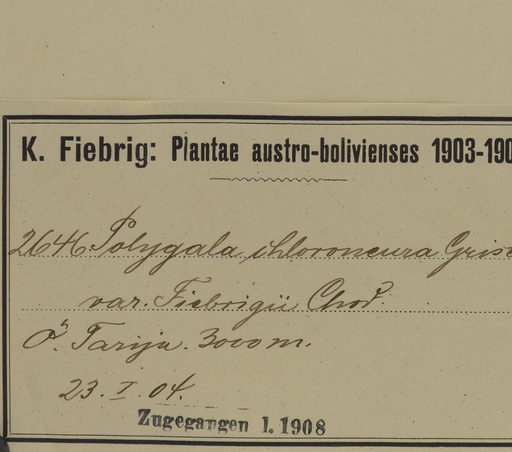 K. Fiebrig: Plantae austro-bolivienses 1903-190
2646 Polygala chloroneura Griseb
var. Fiebrigii Chod.
Pa. Tarija. 3000 m.
23. I. 04.
Zugegangen 1. 1908